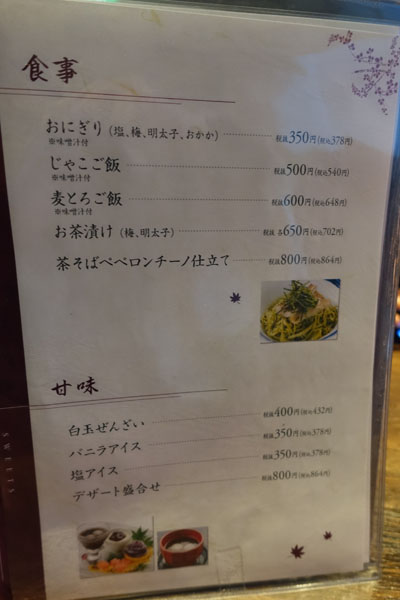 食事
おにぎり（塩、梅、明太子、おかか） 税抜350円(税込378円)
※味噌汁付
じゃこご飯 税抜500円(税込540円)
※味噌汁付
麦とろご飯 税抜600円(税込648円)
※味噌汁付
お茶漬け（梅、明太子） 税抜 各650円(税込702円)
茶そばペペロンチーノ仕立て 税抜800円(税込864円)
甘味
白玉ぜんざい 税抜400円(税込432円)
バニラアイス 税抜350円(税込378円)
塩アイス 税抜350円(税込378円)
デザート盛合せ 税抜800円(税込864円)
SWEETS